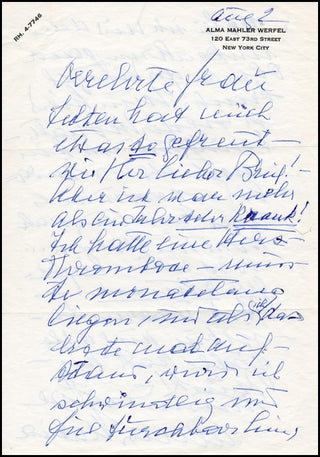 RH. 4-7746
Aug 2
ALMA MAHLER WERFEL
120 EAST 73RD STREET
NEW YORK CITY
Verehrte Frau
selten hat mich
etwas so gefreut –
wie Ihr lieber Brief! –
Aber ich war mehr
als ein Jahr sehr krank!
Ich hatte eine Herz-
Thrombose – muss
te monatelang
liegen und als ich das
erste mal auf-
stand, wurde ich
schwindlig und
fiel